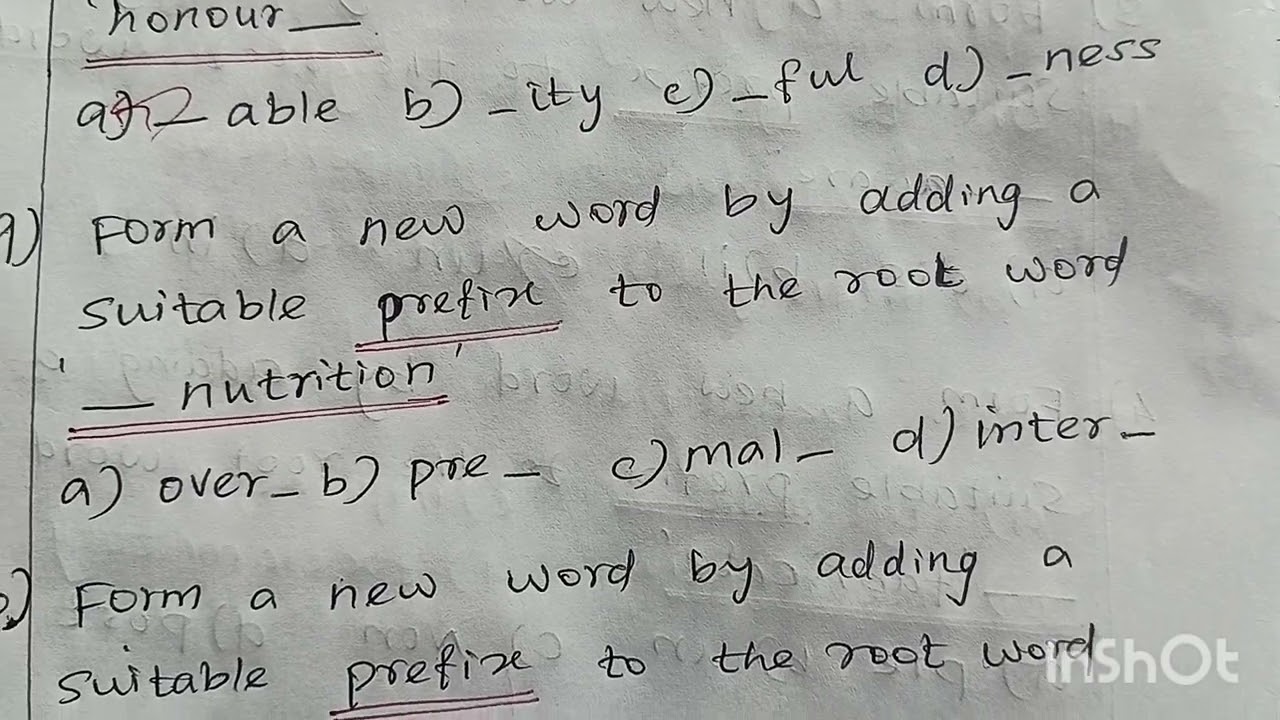 'honour__
a) _ able b) _ity c) _ful d) _ness
9) Form a new word by adding a
suitable prefix to the root word
'__ nutrition'
a) over_ b) pre_ c) mal_ d) inter_
Form a new word by adding a
suitable prefix to the root word
InShOt